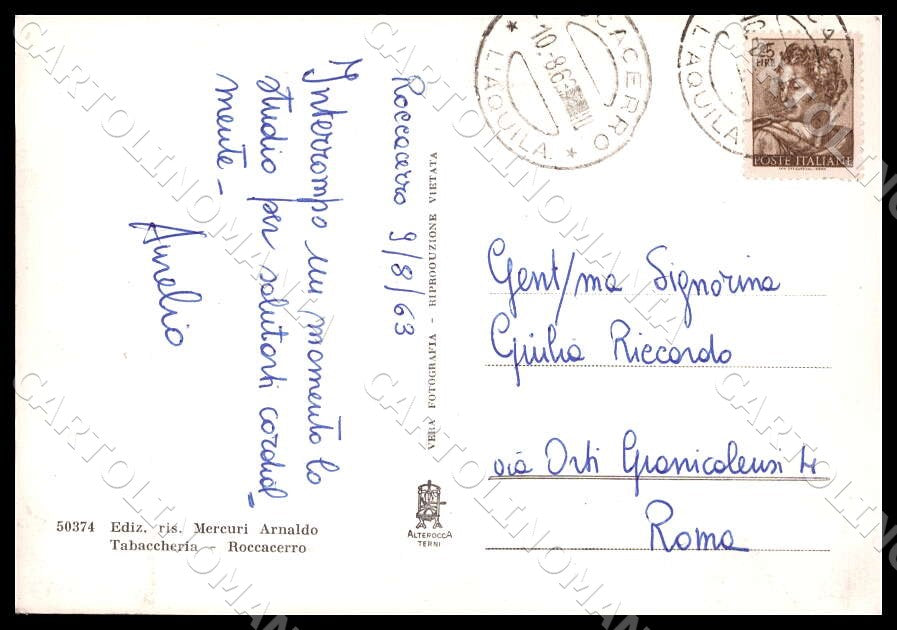 Roccacerro 9/8/63
Interrompo un momento lo
studio per salutarti cordial=
mente -
Aurelio
50374 Ediz. ris. Mercuri Arnaldo
Tabaccheria - Roccacerro
VERA FOTOGRAFIA - RIPRODUZIONE VIETATA
ALTEROCCA
TERNI
ROCCACERRO
* L'AQUILA *
10-8-63
L'AQUILA
LIRE
POSTE ITALIANE
Gent/ma Signorina
Giulia Riccardo
via Orti Gianicolensi
Roma
CARTOLINOMANIA